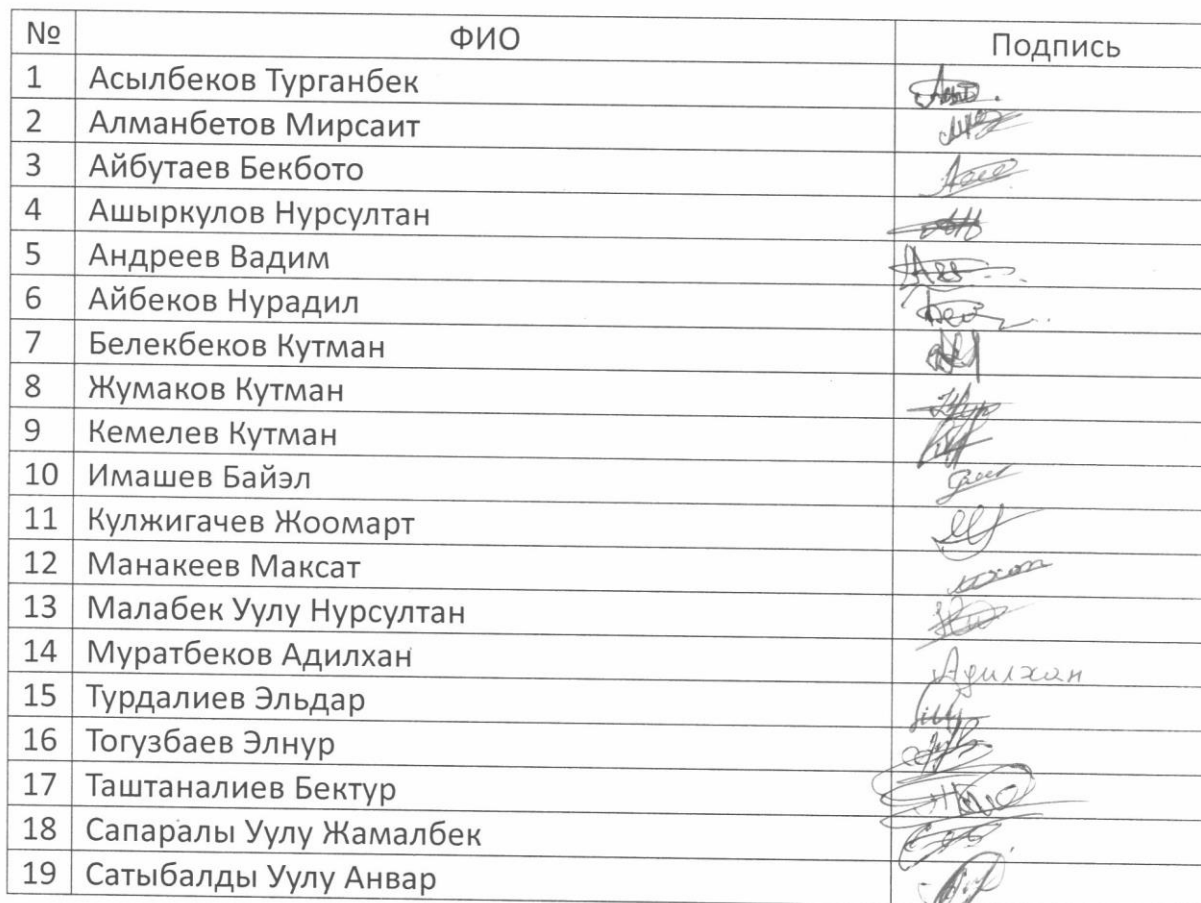 № ФИО Подпись
1 Асылбеков Турганбек
2 Алманбетов Мирсаит
3 Айбутаев Бекбото
4 Ашыркулов Нурсултан
5 Андреев Вадим
6 Айбеков Нурадил
7 Белекбеков Кутман
8 Жумаков Кутман
9 Кемелев Кутман
10 Имашев Байэл
11 Кулжигачев Жоомарт
12 Манакеев Максат
13 Малабек Уулу Нурсултан
14 Муратбеков Адилхан Адилхан
15 Турдалиев Эльдар
16 Тогузбаев Элнур
17 Таштаналиев Бектур
18 Сапаралы Уулу Жамалбек
19 Сатыбалды Уулу Анвар